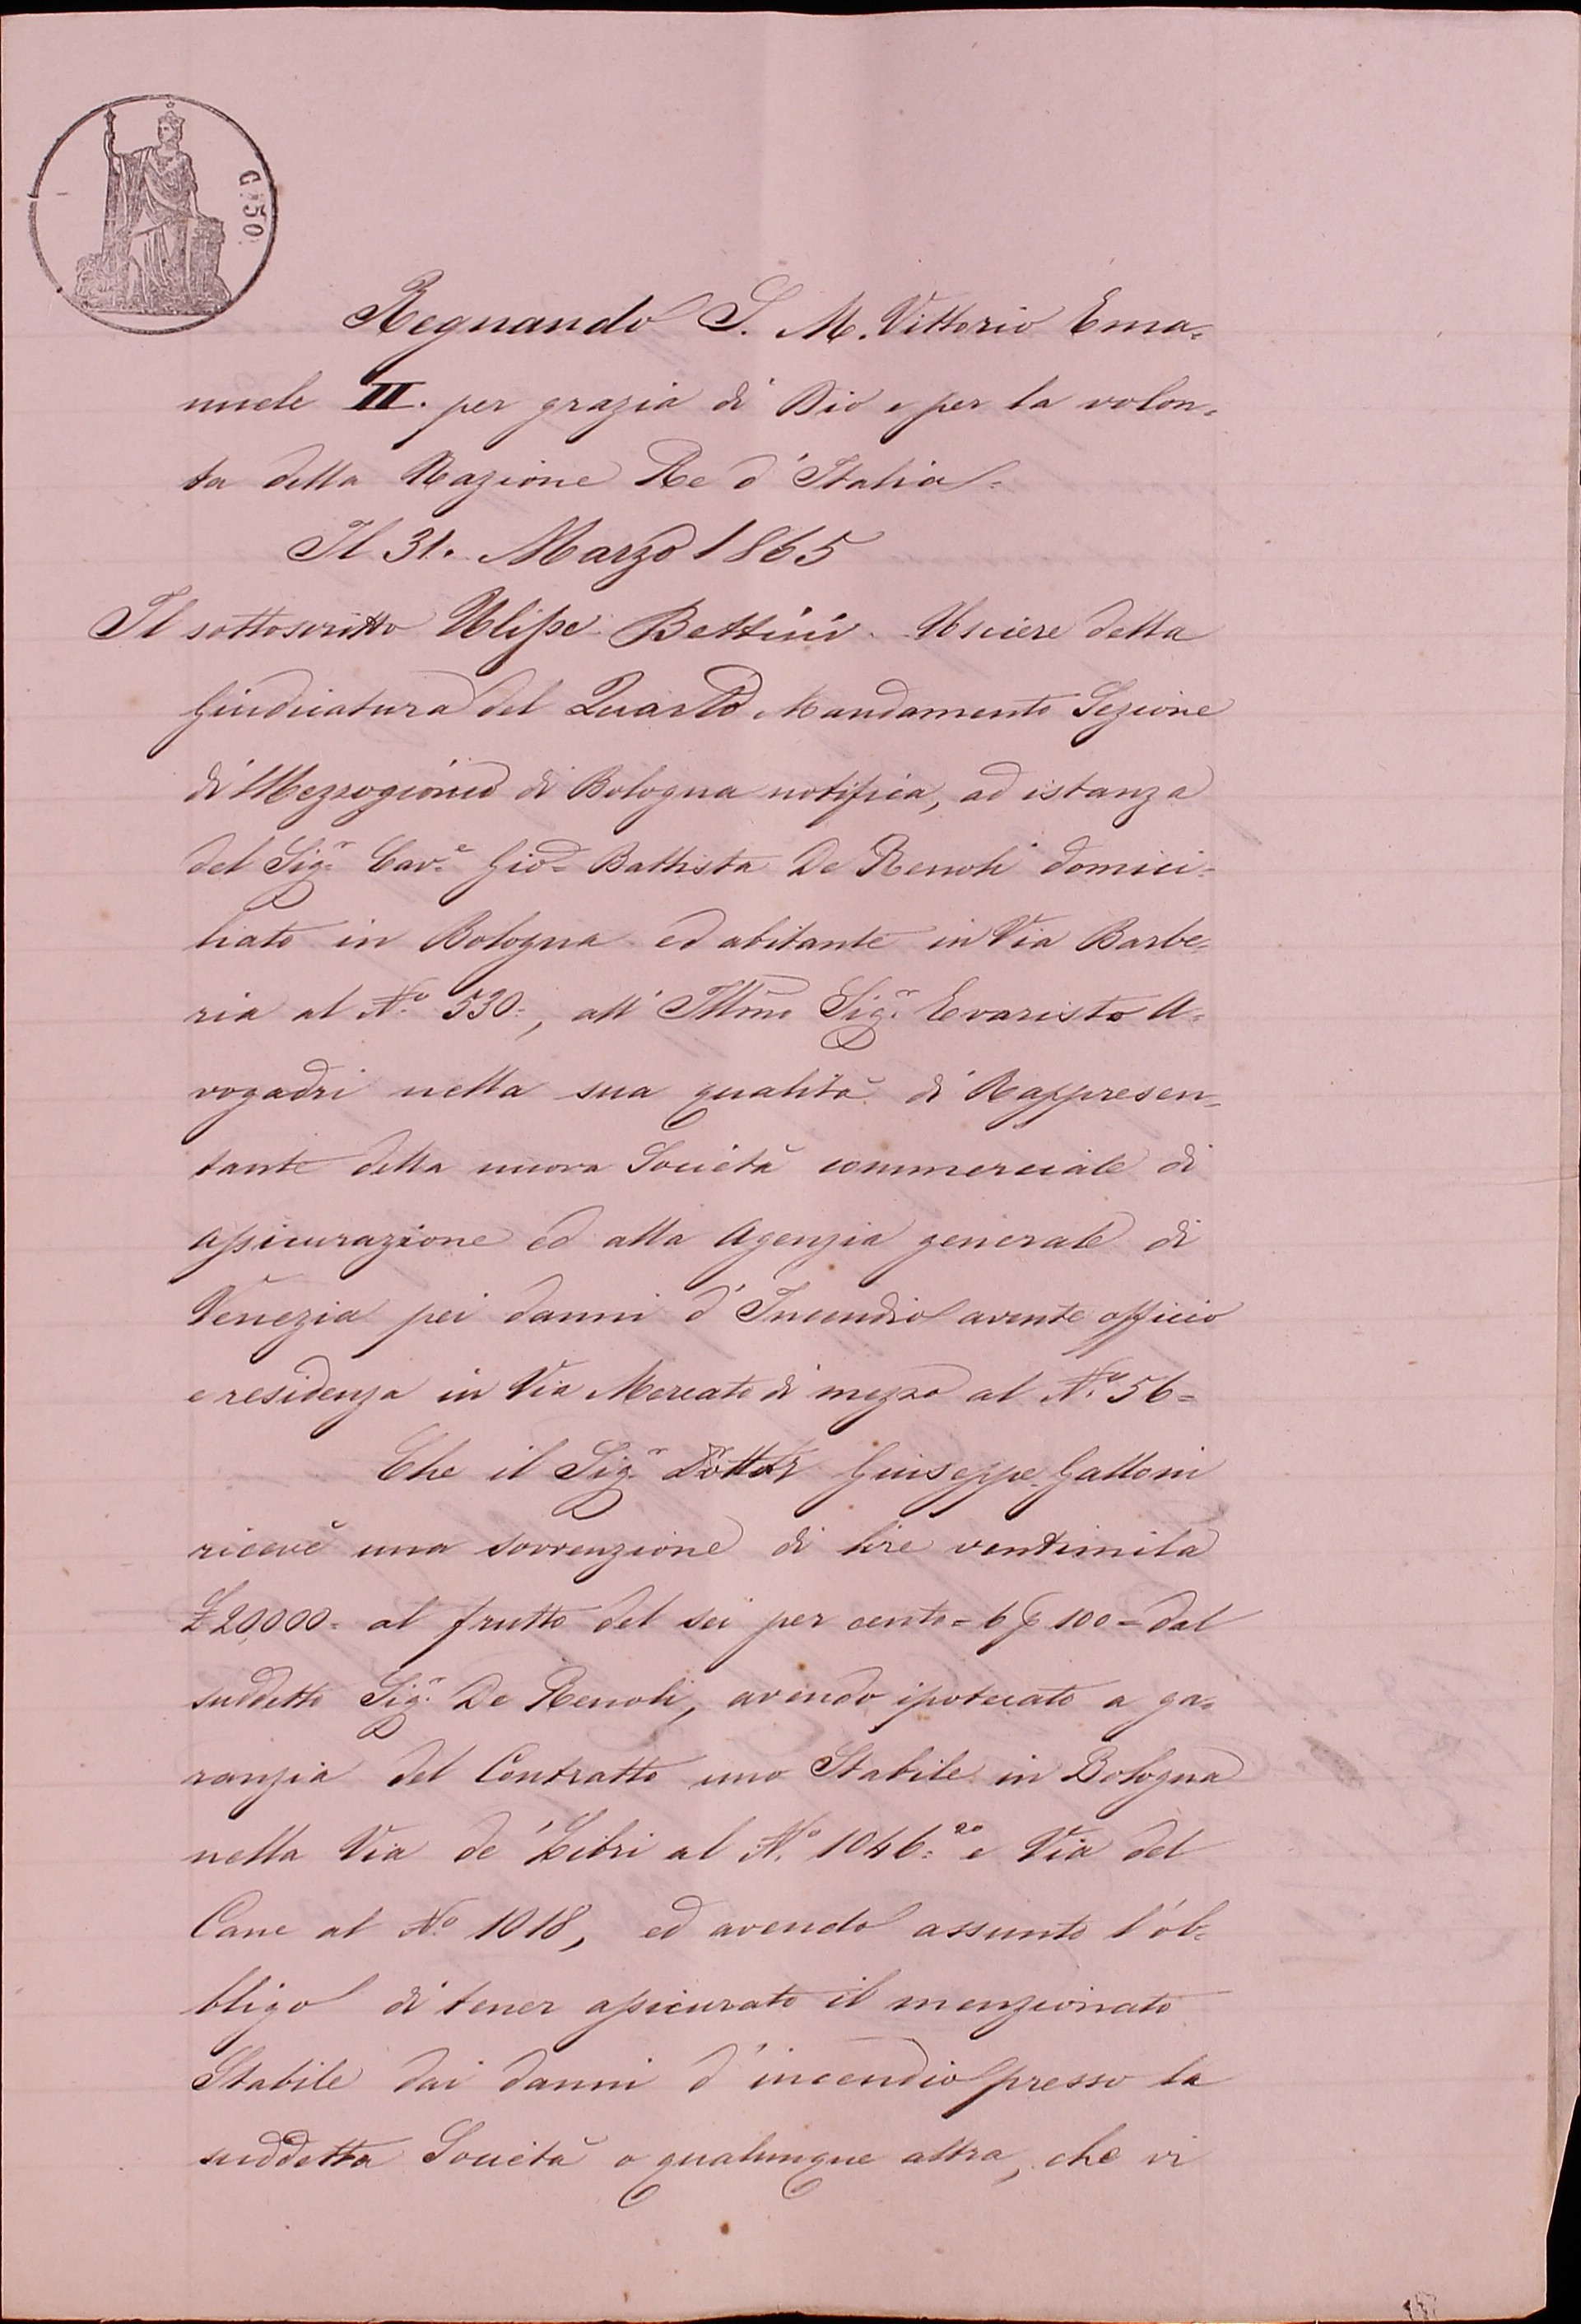 G. 50.
Regnando S. M. Vittorio Ema=
nuele II. per grazia di Dio e per la volon=
ta della Nazione Re d'Italia=
Il 31. Marzo 1865
Il sottoscritto Ulisse Bettini Usciere della
Giudicatura del Quarto Mandamento Sezione
di Mezzogiorno di Bologna notifica, ad istanza
del Sig.r Cav.e Gio= Battista De Renoli domici=
liato in Bologna ed abitante in Via Barbe=
ria al N.o 530=, all' Illmo Sig.r Evaristo A=
vogadri nella sua qualità di Rappresen=
tante della nuova Società commerciale di
assicurazione ed alla Agenzia generale di
Venezia pei danni d'Incendio avente officio
e residenza in Via Mercato di mezzo al N.o 56=
Che il Sig.r Dottor Giuseppe Galloni
ricevè una sovvenzione di lire ventimila
£ 20,000= al frutto del sei per cento= 6 p 100= dal
suddetto Sig.r De Renoli, avendo ipotecato a ga=
ranzia del Contratto uno Stabile in Bologna
nella Via de' Libri al N.o 1046= 2o e Via del
Cane al No 1018, ed avendo assunto l'ob=
bligo di tener assicurato il menzionato
Stabile dai danni d'incendio presso la
suddetta Società o qualunque altra, che vi